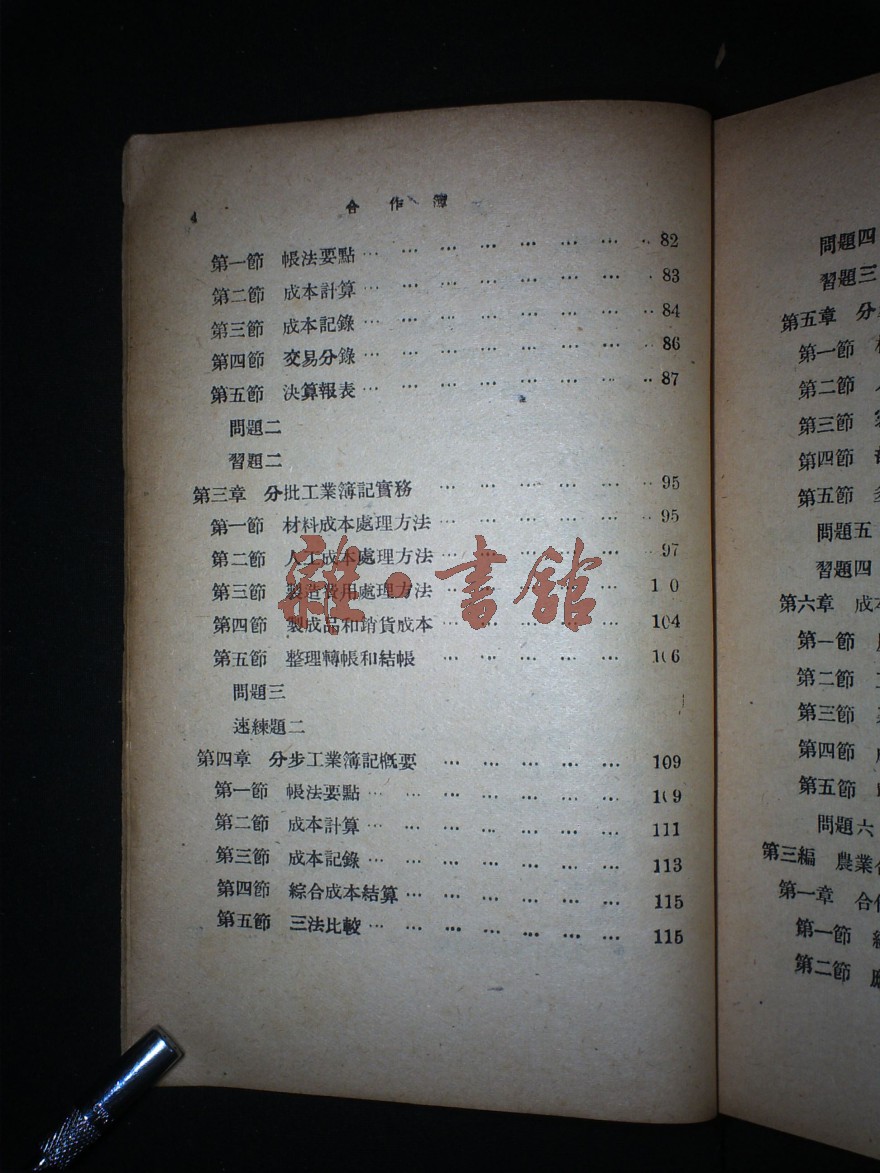 4 合作簿
第一節 帳法要點 … … … … … … … 82
第二節 成本計算 … … … … … … … 83
第三節 成本記錄 … … … … … … … 84
第四節 交易分錄 … … … … … … … 86
第五節 決算報表 … … … … … … … 87
問題二
習題二
第三章 分批工業簿記實務 … … … … … 95
第一節 材料成本處理方法 … … … … … 95
第二節 人工成本處理方法 … … … … … 97
第三節 製造費用處理方法 … … … … … 1 0
第四節 製成品和銷貨成本 … … … … … 104
第五節 整理轉帳和結帳 … … … … … 106
問題三
速練題二
第四章 分步工業簿記概要 … … … … … 109
第一節 帳法要點 … … … … … … … 109
第二節 成本計算 … … … … … … … 111
第三節 成本記錄 … … … … … … … 113
第四節 綜合成本結算 … … … … … … 115
第五節 三法比較 … … … … … … … 115
雜·書館
問題四
習題三
第五章 分
第一節
第二節
第三節
第四節
第五節
問題五
習題四
第六章 成本
第一節
第二節
第三節
第四節
第五節
問題六
第三編 農業合
第一章 合作
第一節
第二節